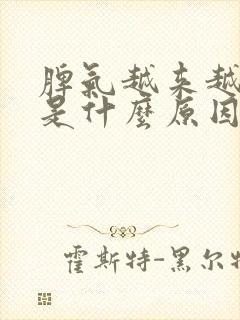 脾氣越來越
是什麼原因
霍斯特-黑尔特